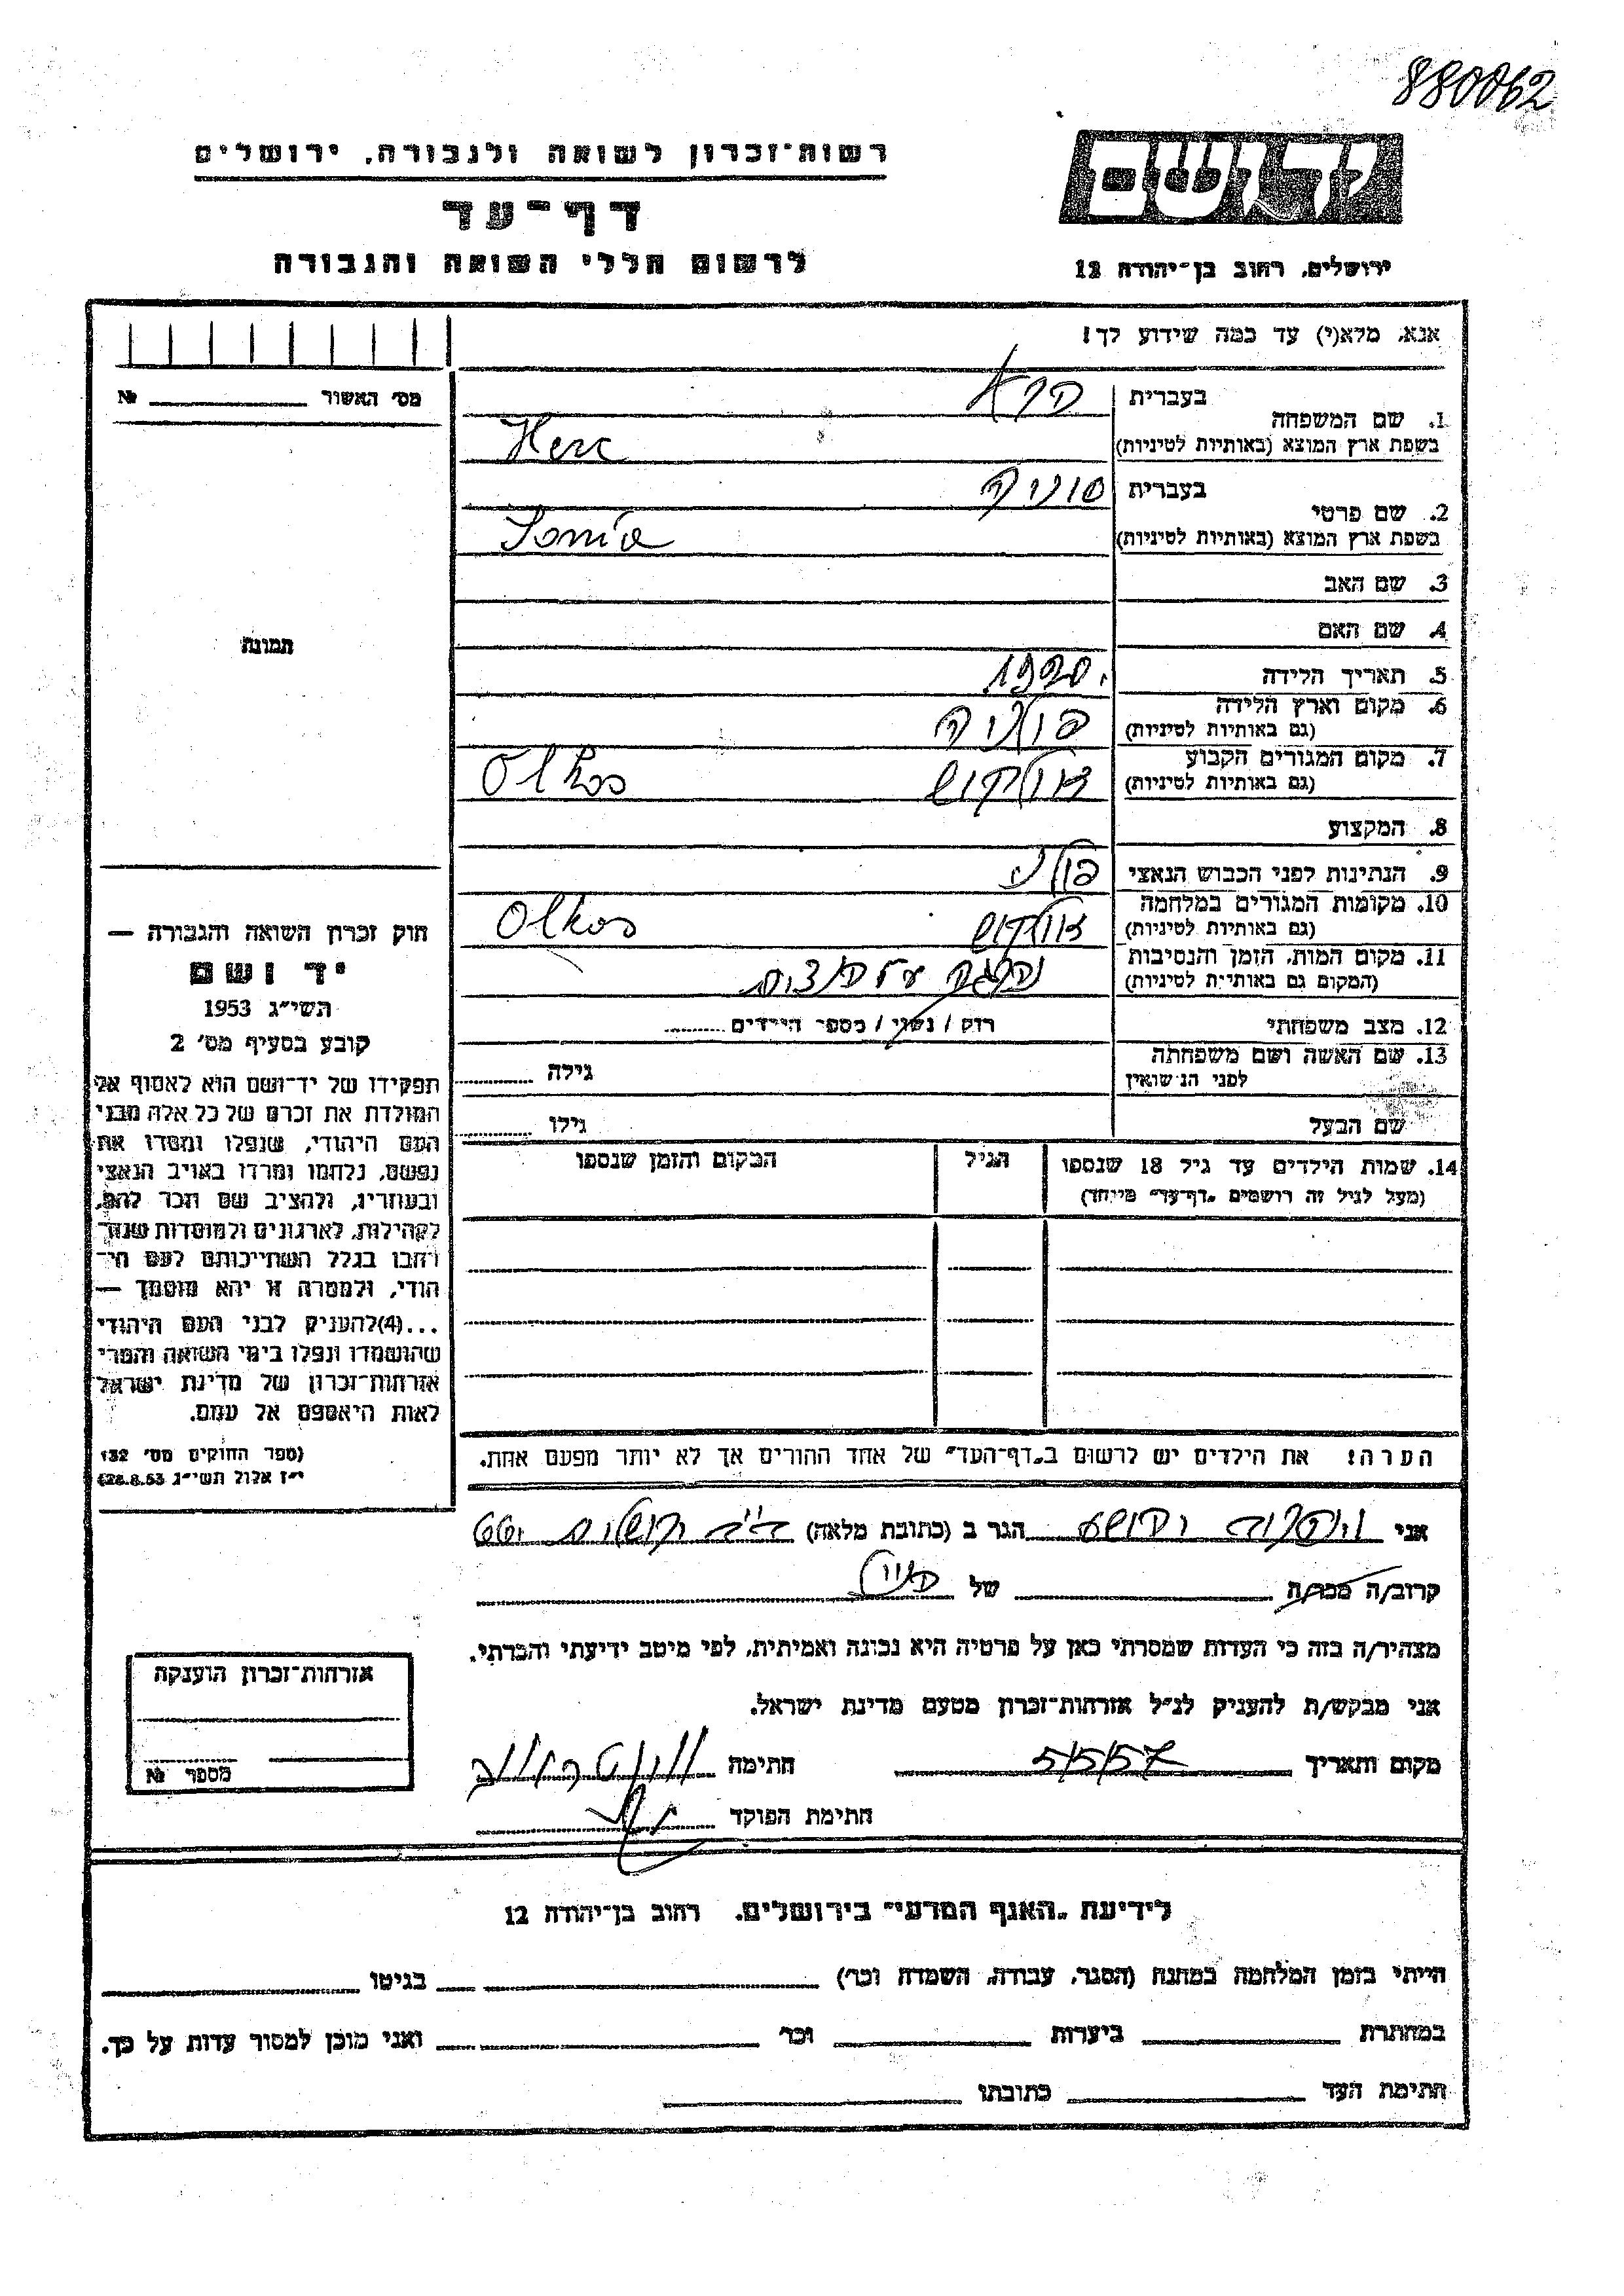 880062
רשות־זכרון לשואה ולגבורה, ירושלים
דף־עד
לרשום חללי השואה והגבורה
ירושלים, רחוב בן־יהודה 12
אנא, מלא(י) עד כמה שידוע לך!
מס׳ האשור №
1. שם המשפחה
בעברית
בשפת ארץ המוצא (באותיות לטיניות) Herc
2. שם פרטי
בעברית סוניה
בשפת ארץ המוצא (באותיות לטיניות) Sonia
3. שם האב
4. שם האם
5. תאריך הלידה 1920
6. מקום וארץ הלידה פולניה
(גם באותיות לטיניות)
7. מקום המגורים הקבוע אולקוש Olkos
(גם באותיות לטיניות)
8. המקצוע
9. הנתינות לפני הכבוש הנאצי פולני
10. מקומות המגורים במלחמה אולקוש Olkos
(גם באותיות לטיניות)
11. מקום המות, הזמן והנסיבות
(המקום גם באותיות לטיניות)
12. מצב משפחתי רוק / נשוי / מספר הילדים
13. שם האשה ושם משפחתה
לפני הנישואין גילה
שם הבעל גילו
14. שמות הילדים עד גיל 18 שנספו הגיל המקום והזמן שנספו
(מעל לגיל זה רושמים „דף־עד״ מייחד)
תמונה
חוק זכרון השואה והגבורה —
יד ושם
תשי״ג 1953
קובע בסעיף מס׳ 2
תפקידו של יד־ושם הוא לאסוף אל
המולדת את זכרם של כל אלה מבני
העם היהודי, שנפלו ומסרו את
נפשם, נלחמו ומרדו באויב הנאצי
ובעוזריו, ולהציב שם וזכר להם,
לקהילות, לארגונים ולמוסדות שנח־
רבו בגלל השתייכותם לעם הי־
הודי, ולמטרה זו יהא מוסמך —
...(4)להעניק לבני העם היהודי
שהושמדו ונפלו בימי השואה והמרי
אזרחות־זכרון של מדינת ישראל
לאות היאספם אל עמם.
(ספר החוקים מס׳ 132
י״ז אלול תשי״ג 28.8.53)
הערה! את הילדים יש לרשום ב„דף־העד״ של אחד ההורים אך לא יותר מפעם אחת.
אני הגר ב (כתובת מלאה)
קרוב/ה מכר/ה של
מצהיר/ה בזה כי העדות שמסרתי כאן על פרטיה היא נכונה ואמיתית, לפי מיטב ידיעתי והכרתי.
אני מבקש/ת להעניק לנ״ל אזרחות־זכרון מטעם מדינת ישראל.
מקום ותאריך 5/5/57 חתימה
חתימת הפוקד
אזרחות־זכרון הוענקה
מספר №
לידיעת „האגף המדעי״ בירושלים, רחוב בן־יהודה 12
הייתי בזמן המלחמה במחנה (הסגר, עבודה, השמדה וכר) בגיטו
במחתרת ביערות וכר ואני מוכן למסור עדות על כך.
חתימת העד כתובתו